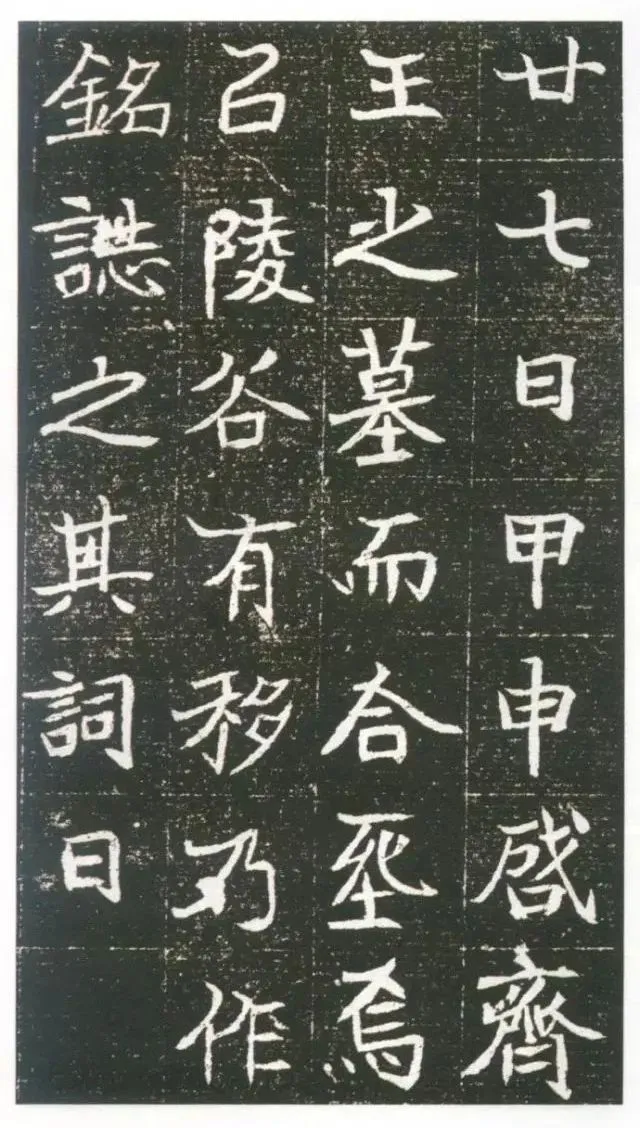 廿七日甲申啓齊
王之墓而合葬焉
㠯陵谷有移乃作
銘誌之其詞曰